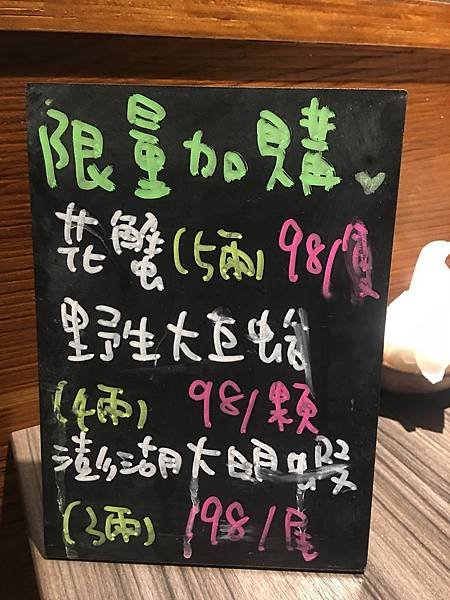 限量加購
花蟹(5兩) 98/隻
野生大巨蛤
(4兩) 98/顆
澎湖大明蝦
(3兩) 198/尾